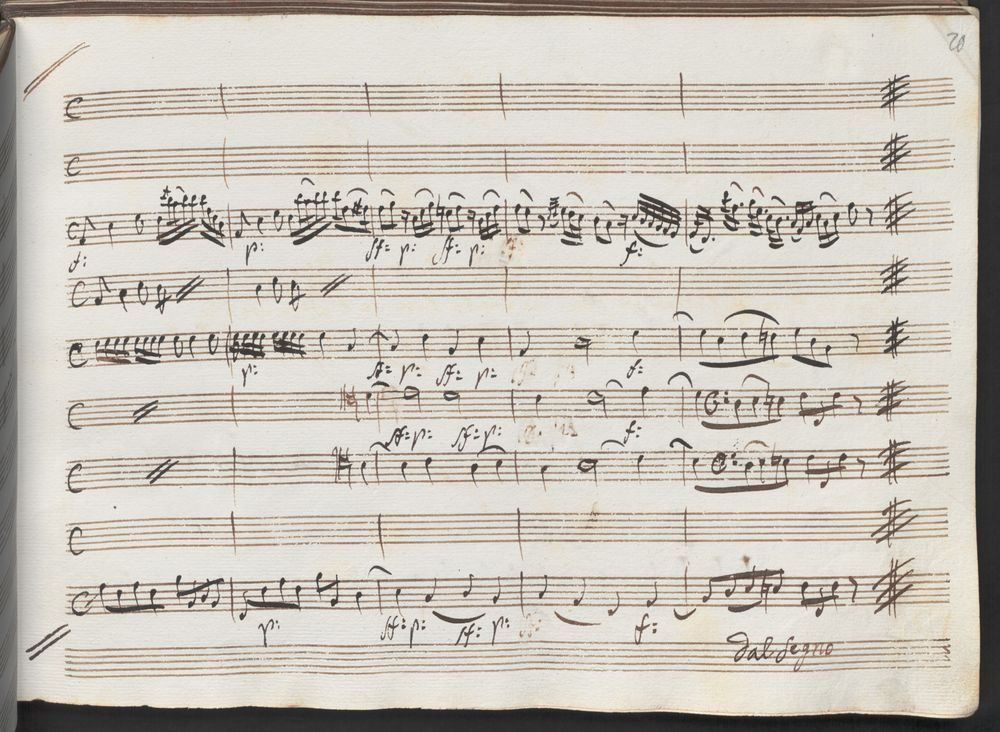 20
f: p: sf: p: sf: p: f:
p: sf: p: sf: p: f:
sf: p: sf: p: f:
p: sf: p: sf: p: f:
Dal Segno